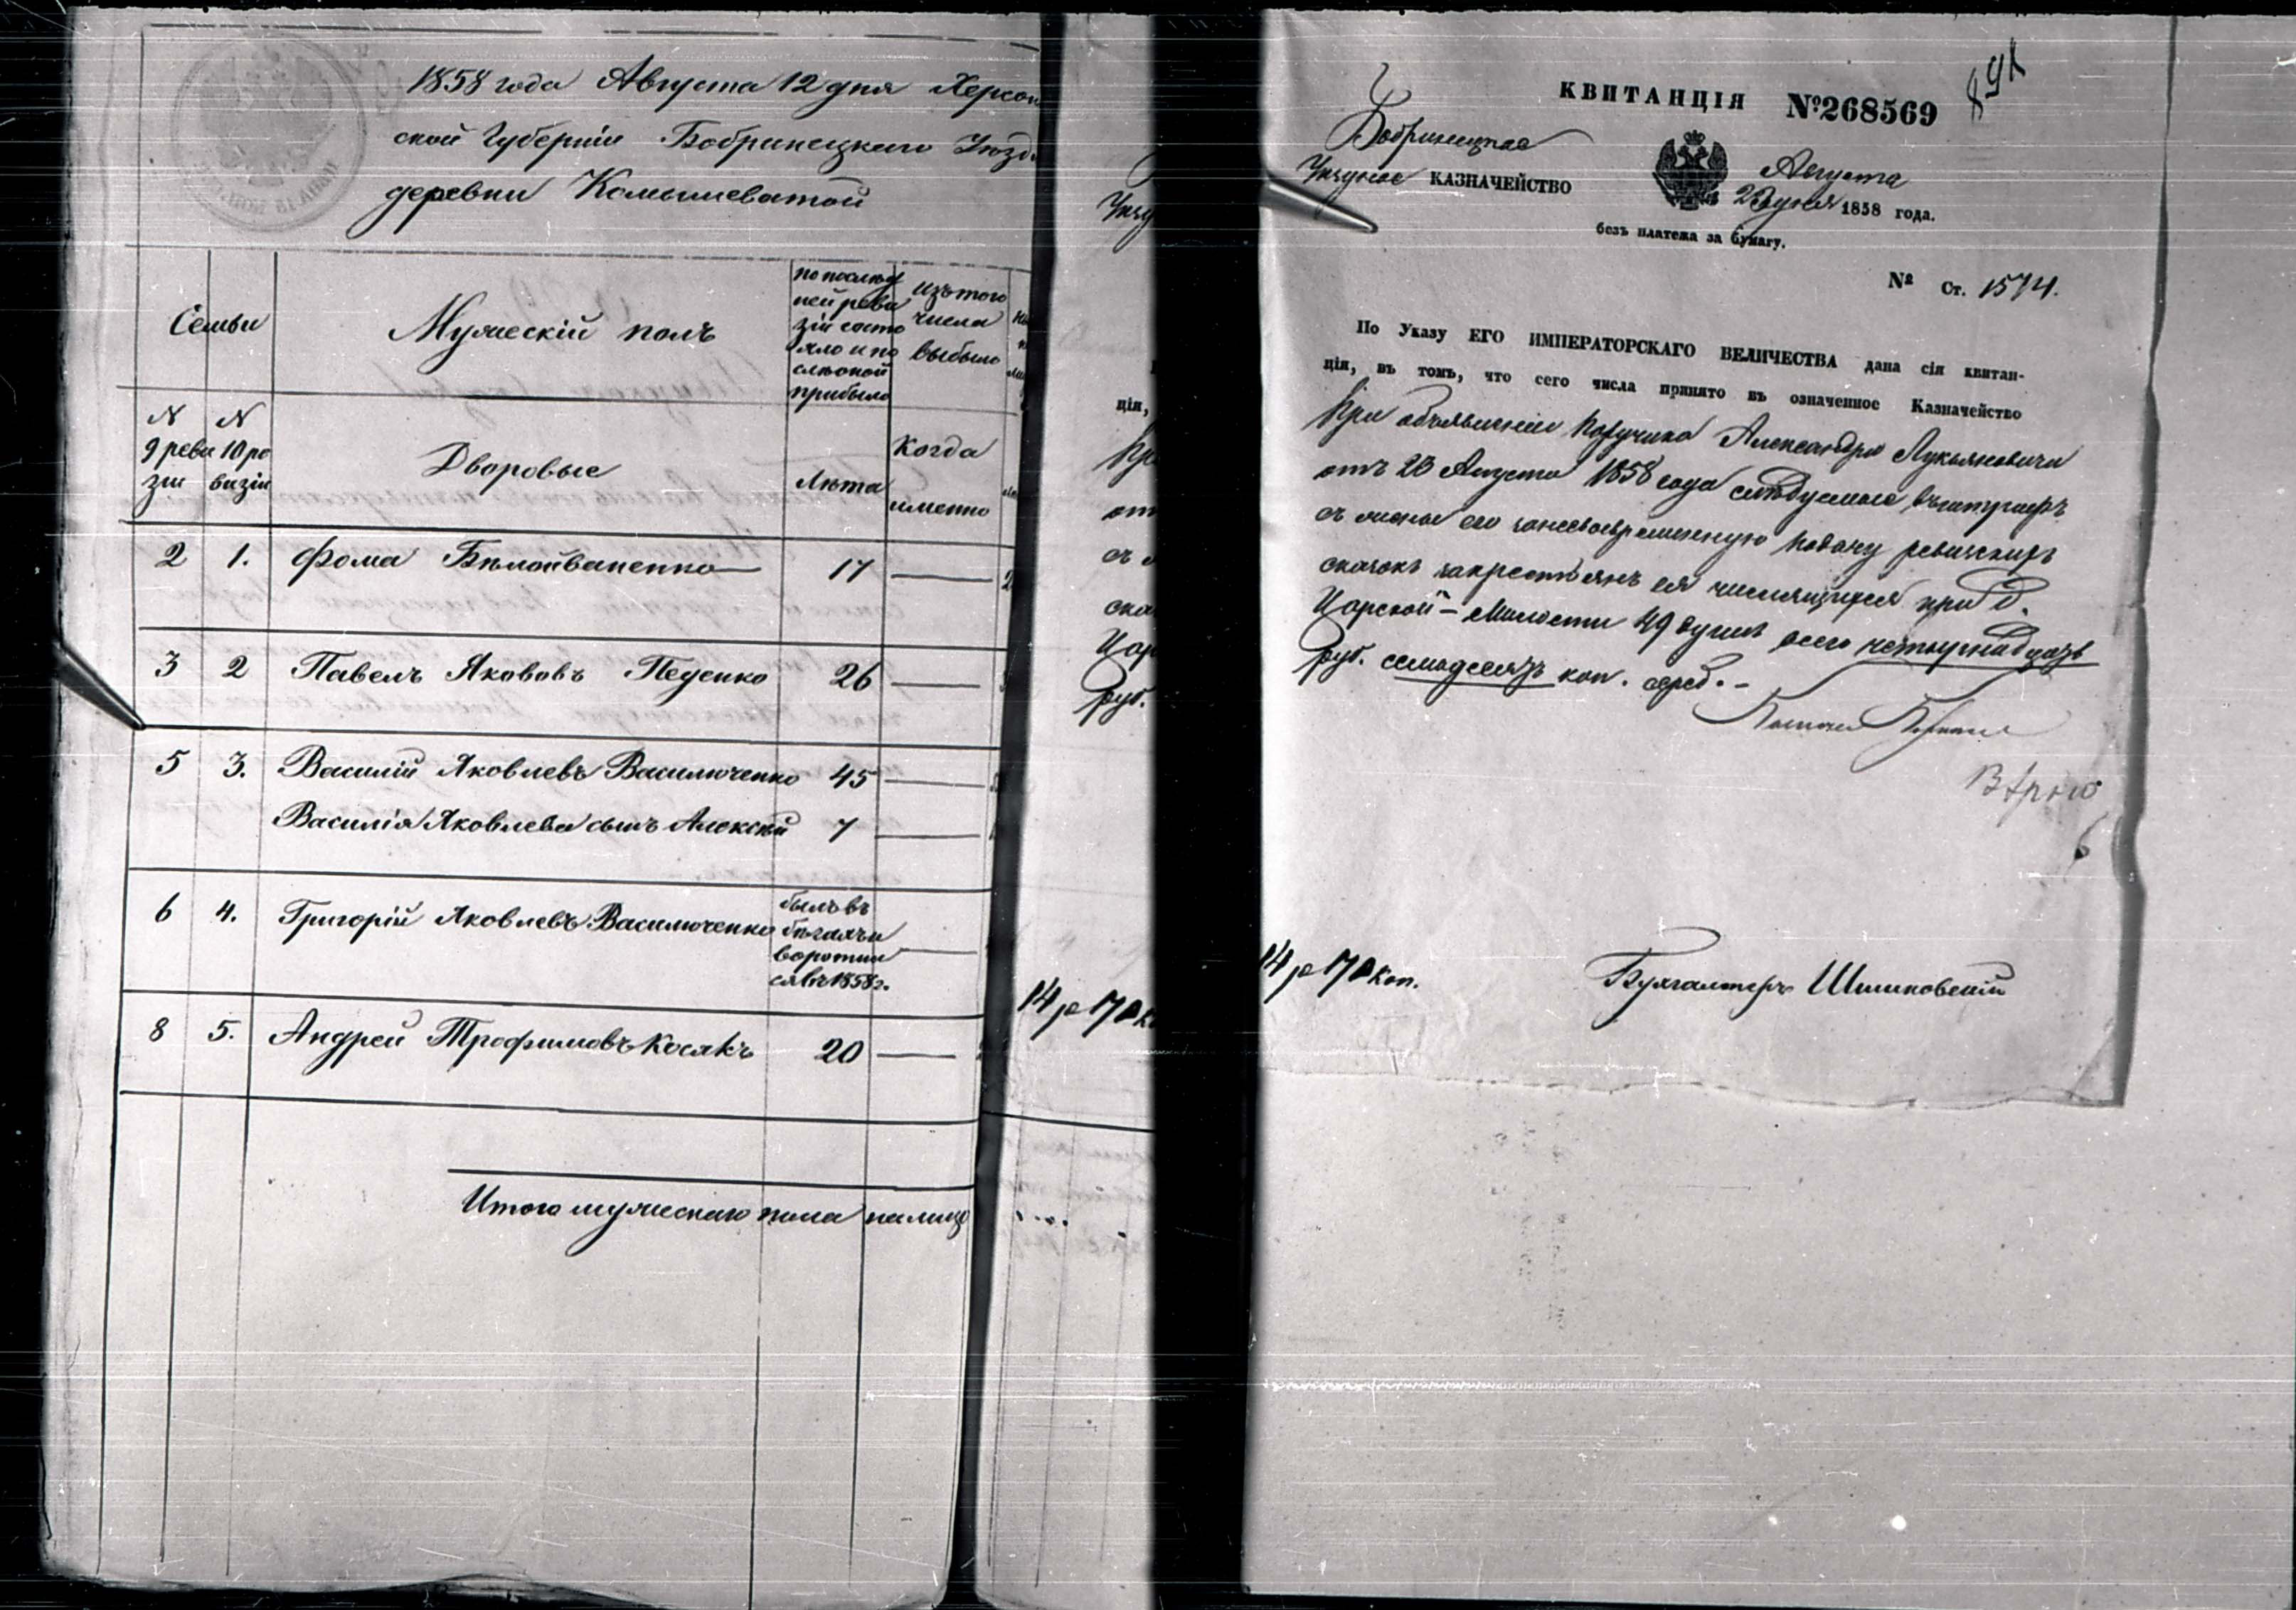 1858 года Августа 12 дня Херсон
ской Губерніи Бобринецкаго Уѣзд
деревни Комышеватой
Семьи
Мужескій полъ
по послѣд
ней реви
зіи состо
яло и по
слѣ оной
прибыло
изъ того
числа
выбыло
N
9 реви
зіи
N
10 ре
визіи
Дворовые
Лѣта
Когда
именно
2 1. Фома Бѣлоиваненко 17
3 2 Павелъ Яковъ Педенко 26
5 3. Василій Яковлевъ Василюченко 45
Василія Яковлева сынъ Алексѣй 7
6 4. Григорій Яковлевъ Василюченко былъ въ
бѣгахъ и
воротил
ся въ 1858 г.
8 5. Андрей Трофимовъ Косякъ 20
Итого мужескаго пола на лицо
ція,
Цар
руб.
14 р 70 к
КВИТАНЦІЯ №268569
891
Бобринецкое
Уѣздное КАЗНАЧЕЙСТВО
Августа
23 дня 1858 года.
безъ платежа за бумагу.
№ Ст. 1574.
По Указу ЕГО ИМПЕРАТОРСКАГО ВЕЛИЧЕСТВА дана сія квитан-
ція, въ томъ, что сего числа принято въ означенное Казначейство
При объявленіи Поручика Александра Лукьяновича
отъ 23 Августа 1858 года слѣдуемые въ штрафъ
съ имѣнія его за несвоевременную подачу ревизскихъ
сказокъ за крестьянъ ея числящихся при д.
Царской-Милости 49 душъ всего четырнадцать
руб. семьдесятъ коп. сереб.
14 р 70 коп.
Бухгалтеръ